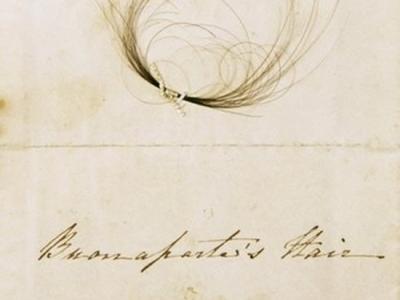 Buonaparte's Hair